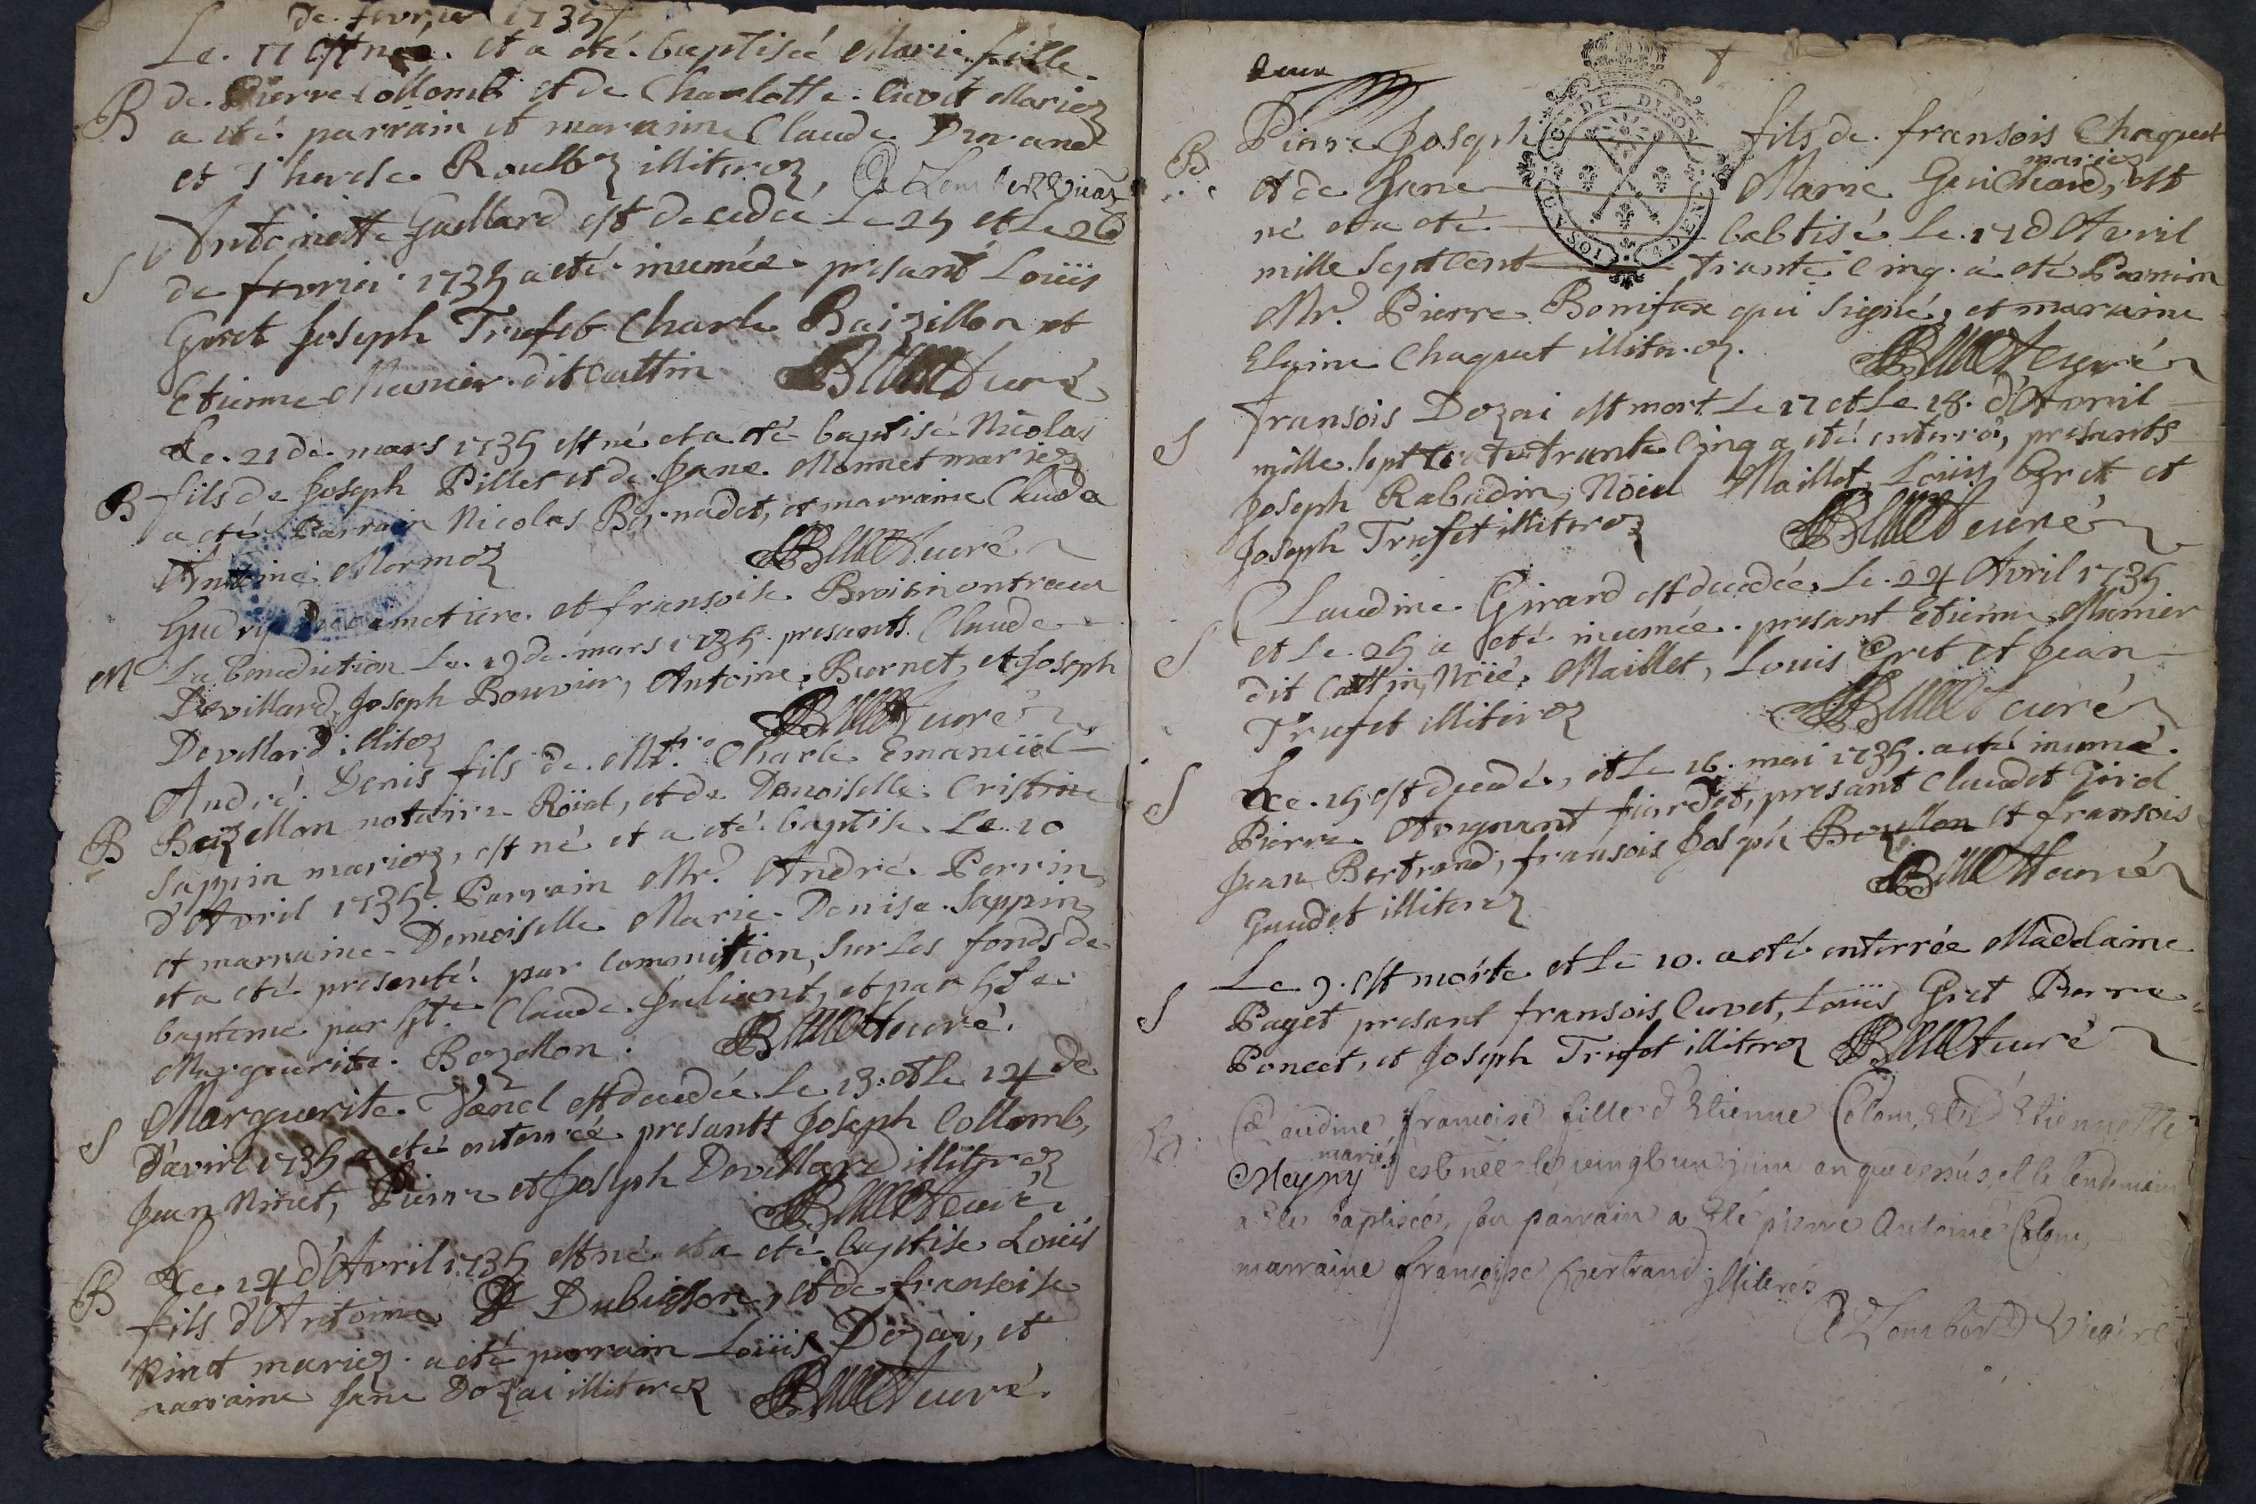 de fevrier 1735
Le. 17 est née. et a eté. baptisée Marie fille.
B de. Pierre Collomb et de Charlotte. Cuvet Mariez
a eté. parrain et maraine Claude Durand
et Therese. Roulloz illiterez,
Antoinette Gaillard est decedée Le 25 et Le 26
S de fevrier 1735 a eté. inumée. presant Loüis
Gret Joseph Trufet Charle Baizillon et
Etienne Munier. dit Cattin curé
Le. 21 de. mars 1735 est né et a eté baptisé Nicolas
B fils de Joseph Pillet et de Jane. Monnet mariez
a eté Parrain Nicolas Bernadet, et marraine Claude
Antoine Mermoz curé
et fransoise. Broisin ont receu
M La benediction Le. 19 de. mars 1735. presants Claude
Devillard, Joseph Bouvier, Antoine. Burnet, et Joseph
Devillard. illitez curé
André. Denis fils de. Mtre. Charle Emanuël
B Baizellon notaire Roïal, et de Demoiselle Cristine
Sappin mariez, est né et a eté. baptisé. Le 10
d'Avril 1735. Parrain Mr. André. Perrin,
et marraine. Demoiselle Marie. Denise. Sappin,
et a eté presenté. par Commition, sur Les fonds de
bapteme par Claude. Juliant, et par
Marguerite. Bozellon. curé.
Marguerite. Vanel est decedée Le 13. et Le 14 de
S D'avril 1735 a eté enterrée presants Joseph Collomb,
Jean Ninet, Pierre et Joseph Devillard illiterez
curé
Le. 14 d'Avril 1735 est né et a eté baptisé Loüis
B fils d'Antoine Dubuisson, et de fransoise
Pinet mariez. a eté parrain Loüis Dozai, et
maraine Jane Dozai illiterez curé.
deux
GNC. DE DIJON
Pierre Joseph fils de. fransois Chaguet
B mariez
et de Jane Marie Guichard, est
né et a eté babtisé Le. 17 d'Avril
mille Sept Cent trante Cinq. a eté Parrain
Mr. Pierre. Boniface qui Signé, et maraine
Claine Chaguet illiterez. curé
S Fransois Dozai est mort. Le 17 et Le 18. d'Avril
mille. Sept Cent trante Cinq a eté enterré, presants
Joseph Rabadin, Noiel Maillet, Loüis Gret et
Joseph Trufet illiterez curé
Claudine. Girard est decedée. Le. 24 Avril 1735
S et Le. 25 a eté inumée. presant Etienne. Munier
dit Cattin, Noié. Maillet, Louis Gret et Jean
Trufet illiterez curé
S Le. 15 est decedé, et Le 16. mai 1735. a eté inumé.
Pierre. Avignant presant Claudet Girel
Jean Bertrand, fransois Joseph Bozellon et fransois
Gaudet illiterez curé
Le 9. est morte et Le 10. a eté enterrée Maddlaine
S Paget presant fransois Cuvet, Loüis Gret Pierre
Poncet, et Joseph Trufet illiterez curé
B Claudine francoise fille d'Etienne Colom, et d'Etiennette
mariés
Meyny est née le vingt un juin an que dessus, et le lendemain
a eté baptisée, son parrain a eté pierre Antoine Colom,
marraine françoise bertrand illiterés
Lombard Vicaire